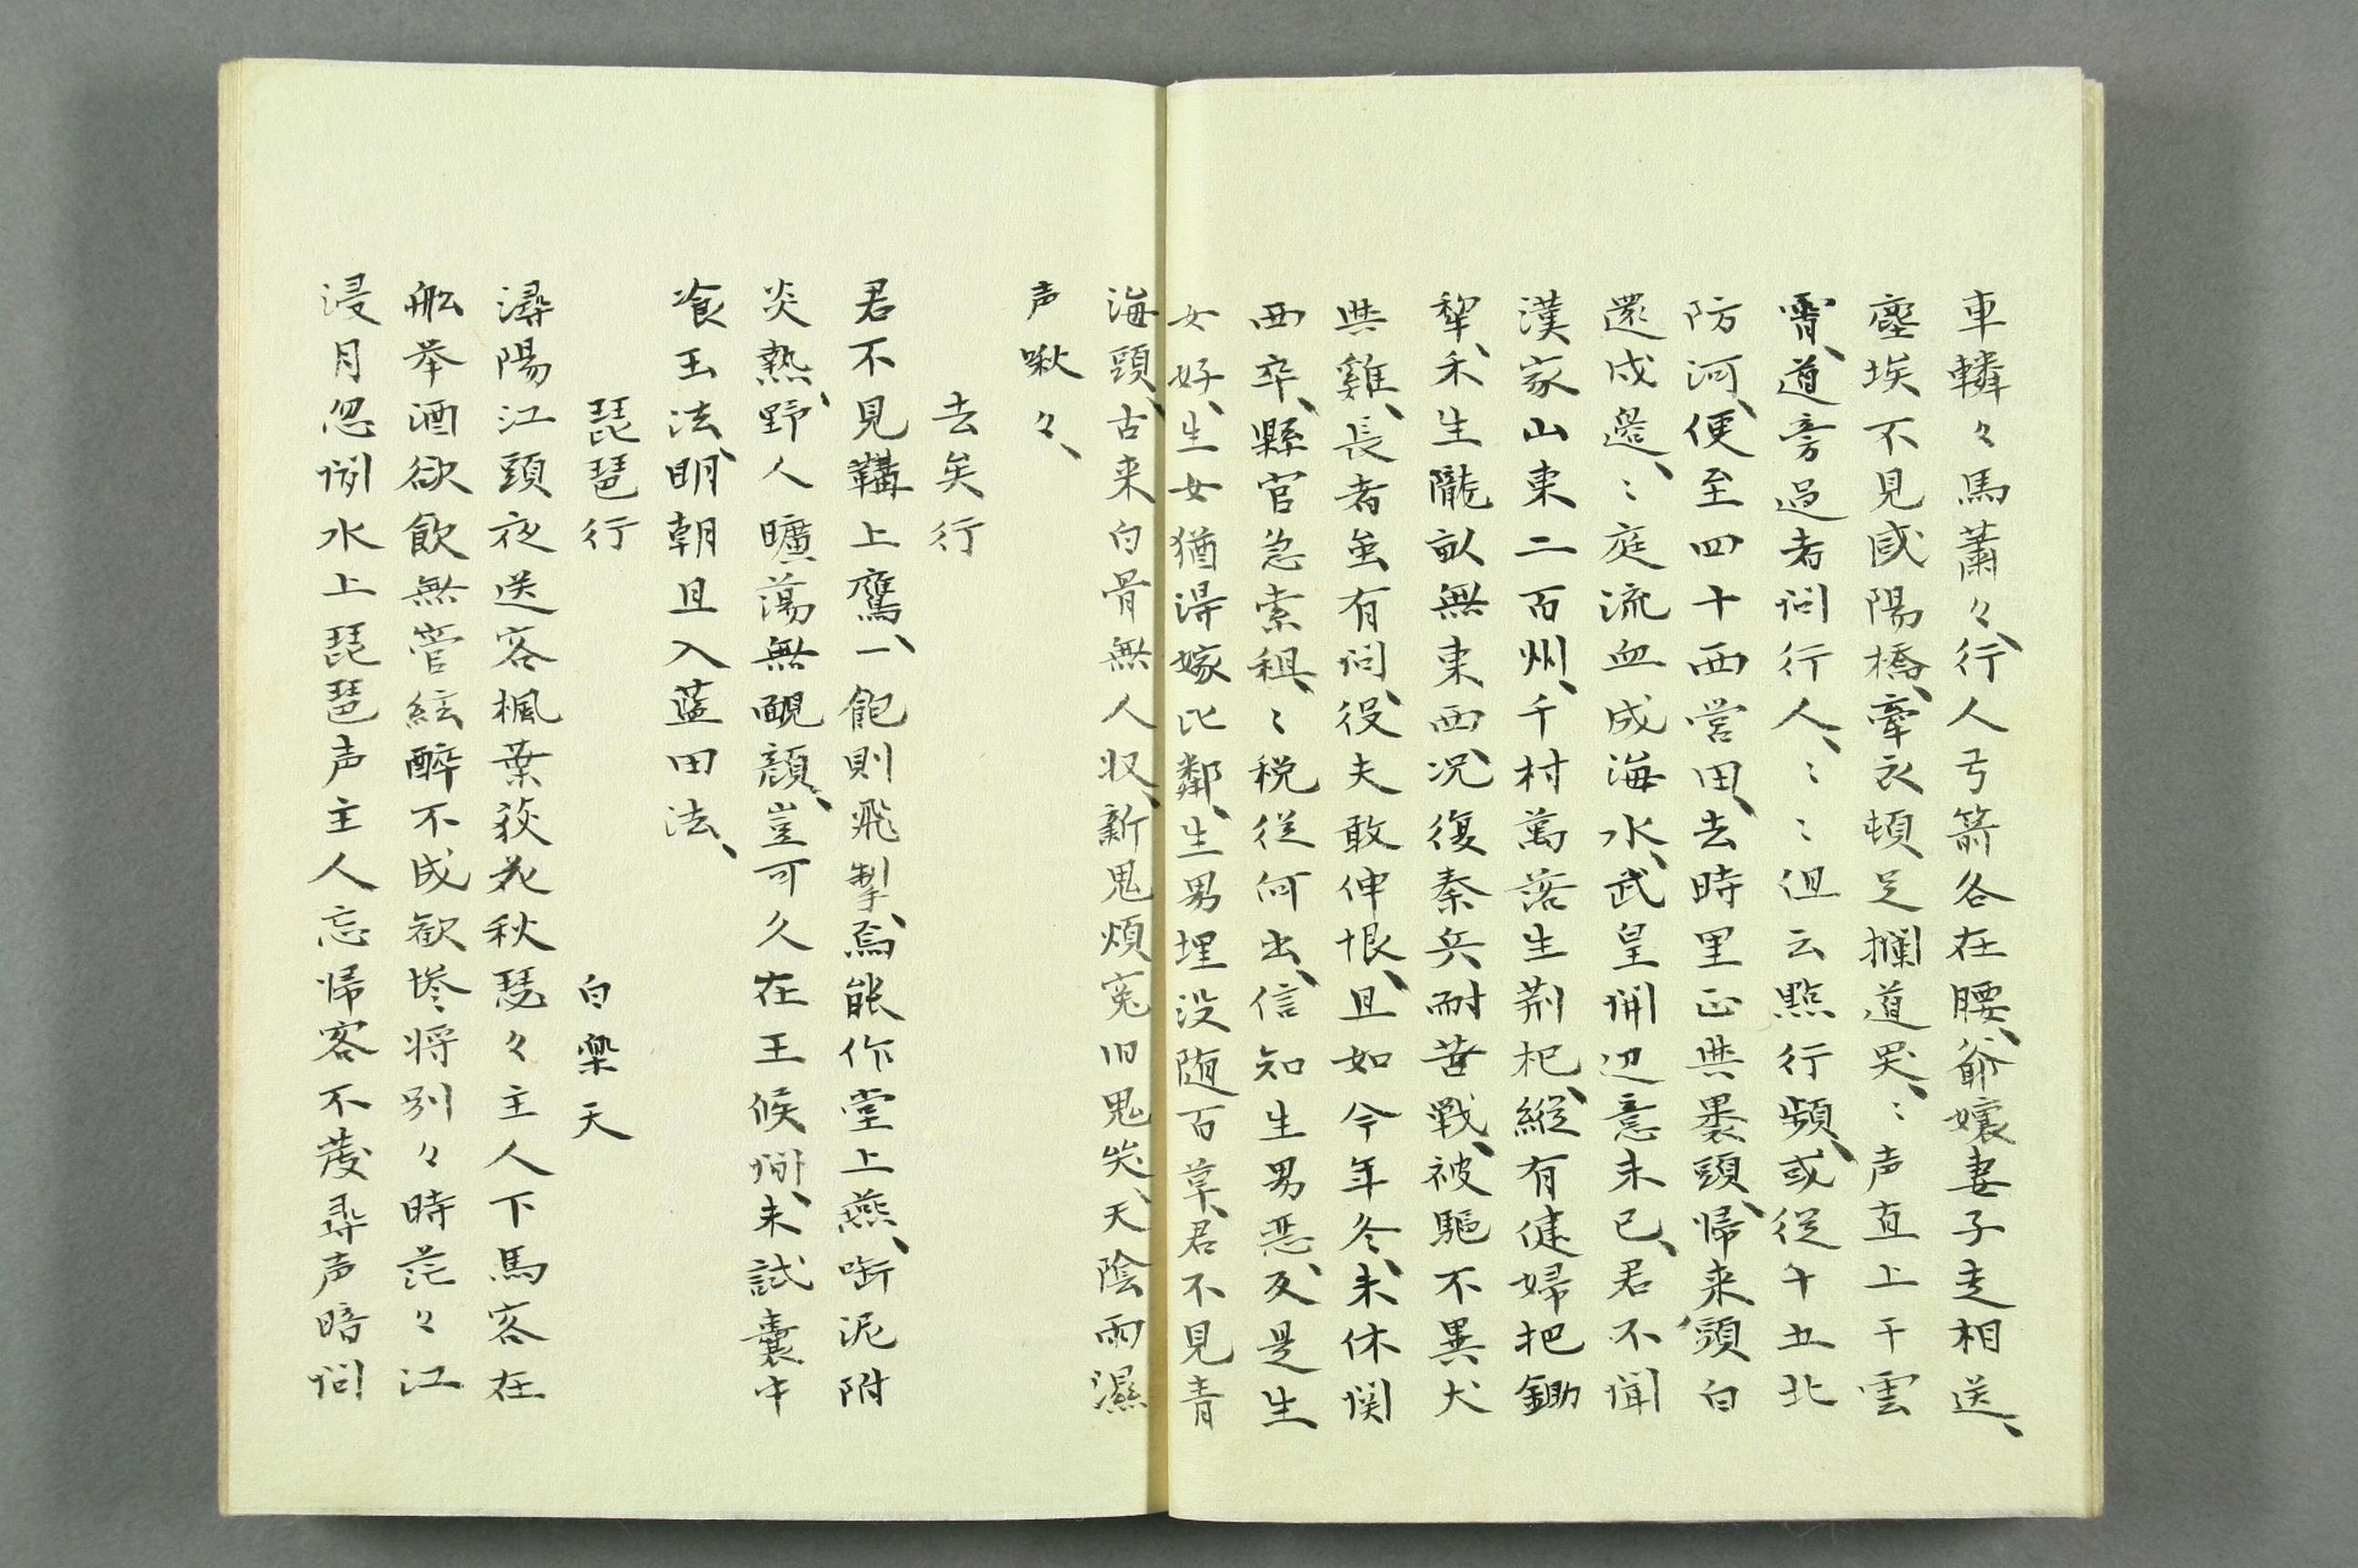 車轔々馬蕭々、行人弓箭各在腰、爺嬢妻子走相送、
塵埃不見咸陽橋、牽衣頓足攔道哭、〻声直上干雲
霄、道旁過者问行人、〻〻但云點行頻、或従十五北
防河、便至四十西営田、去時里正與裹頭、帰来頭白
還戍邉、〻庭流血成海水、武皇開辺意未已、君不聞
漢家山東二百州、千村萬落生荊杞、縦有健婦把鋤
犂、禾生隴畝無東西、况復秦兵耐苦戰、被驅不異犬
與雞、長者虽有问、役夫敢伸恨、且如今年冬、未休関
西卒、縣官急索租、〻税従何出、信知生男悪、反是生
女好、生女猶淂嫁比鄰、生男埋没随百草、君不見青
海頭、古来白骨無人収、新鬼煩寃旧鬼哭、天陰雨濕
声啾々、
去矣行
君不見韝上鷹、一飽則飛掣、焉能作堂上燕、啣泥附
炎熱、野人曠蕩無靦顔、豈可久在王候間、未試嚢中
飡玉法、明朝且入藍田法、
琵琶行　白楽天
潯陽江頭夜送客楓葉荻花秋瑟々主人下馬客在
舩挙酒欲飲無管絃醉不成歓惨将別々時茫々江
浸月忽闻水上琵琶声主人忘帰客不發尋声暗问